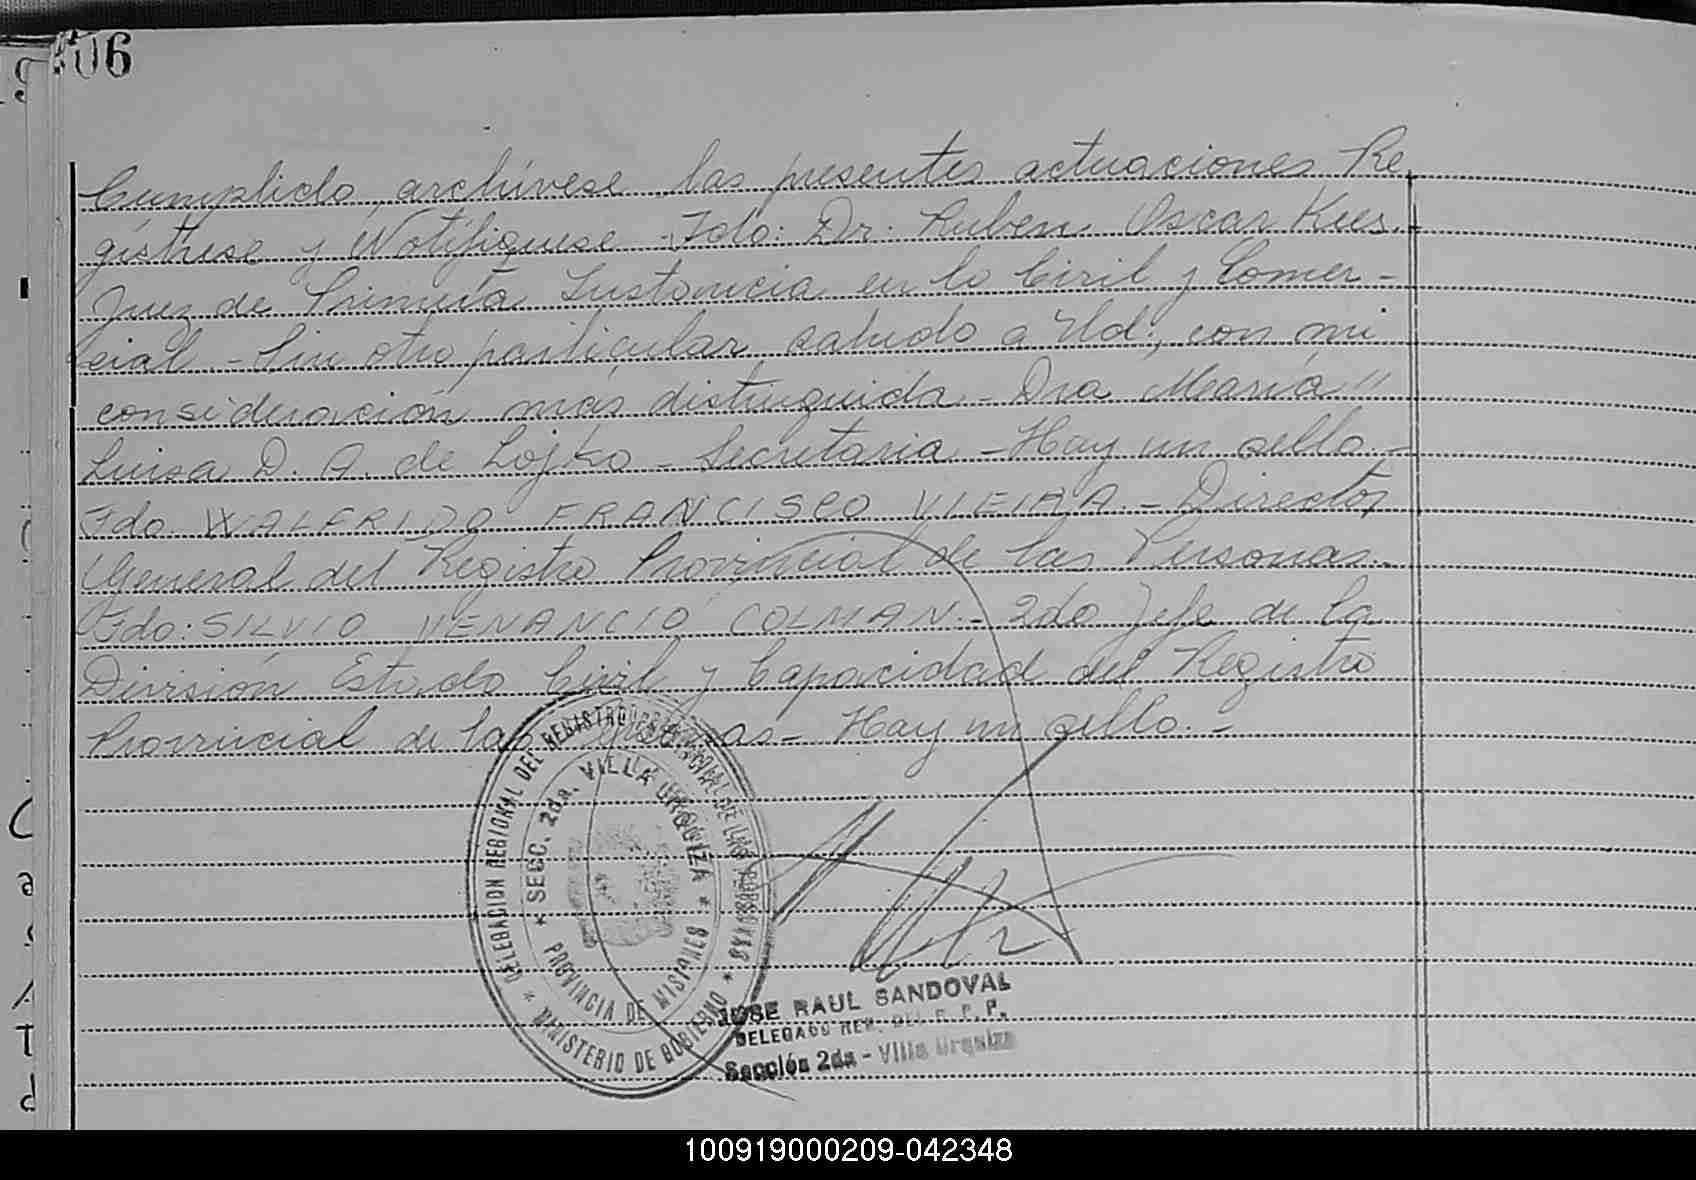 06
Cumplido, archívese las presentes actuaciones Re
gístrese y Notifíquese - Fdo: Dr. Ruben Oscar Kues.
Juez de Primera Instancia en lo Civil y Comer-
cial - Sin otro particular, saludo a Ud., con mi
consideración más distinguida - Dra María"
Luisa D. A. de Lojko - Secretaria - Hay un sello.-
Fdo. WALFRIDO FRANCISCO VIEIRA. - Director
General del Registro Provincial de las Personas.
Fdo: SILVIO VENANCIO COLMAN.- 2do Jefe de la
División Estado Civil y Capacidad del Registro
Provincial de las Personas - Hay un sello.-
DELEGACION REGIONAL DEL REGISTRO PROVINCIAL DE LAS PERSONAS
* SECC. 2da. VILLA URQUIZA *
PROVINCIA DE MISIONES
* MINISTERIO DE GOBIERNO *
JOSE RAUL SANDOVAL
DELEGADO REG. DEL R. P. P.
Sección 2da - Villa Urquiza
100919000209-042348